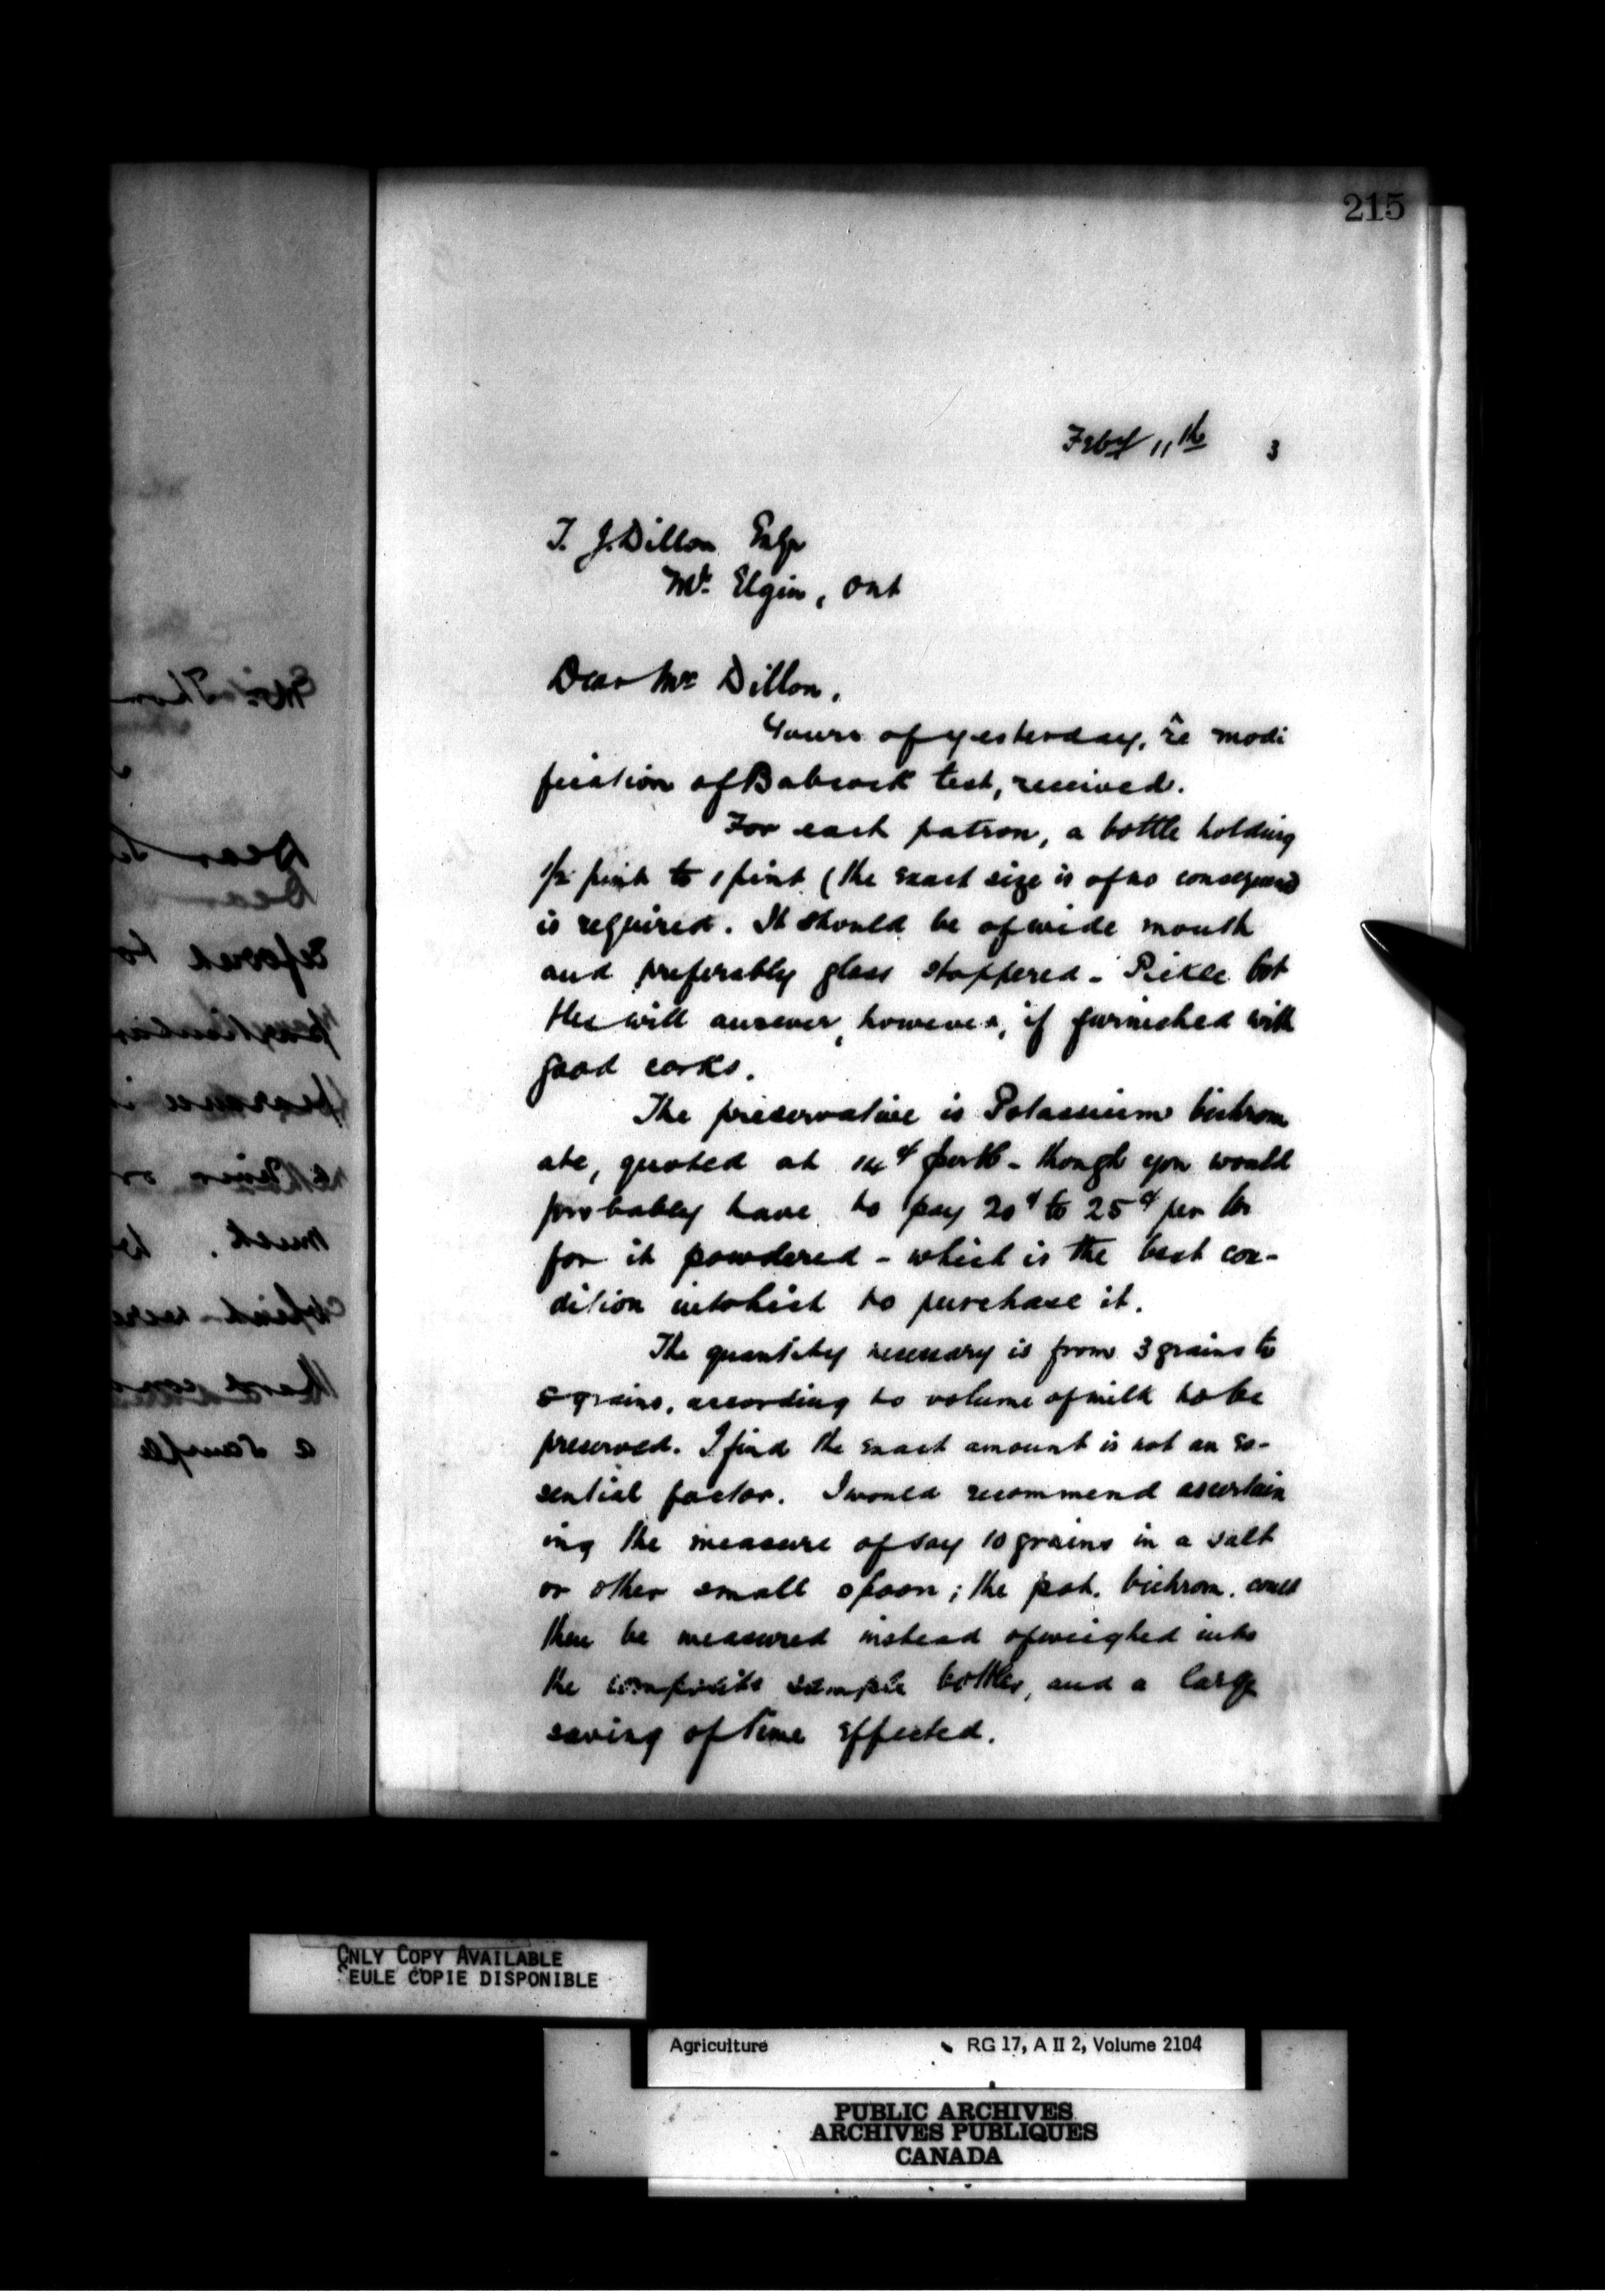 215
Feby 11th 3
T. J. Dillon Esqr
Mt. Elgin, Ont
Dear Mr Dillon,
Yours of yesterday, re modi
fication of Babcock test, received.
For each patron, a bottle holding
1/2 pint to 1 pint (the exact size is of no consequence
is required. It should be of wide mouth
and preferably glass stoppered - Pickle bot
tles will answer, however, if furnished with
good corks.
The preservative is Potassium bichrom
ate, quoted at 14¢ per lb - though you would
probably have to pay 20¢ to 25¢ per lb
for it powdered - which is the best con-
dition in which to purchase it.
The quantity necessary is from 3 grains to
grains, according to volume of milk to be
preserved. I find the exact amount is not an es-
sential factor. I would recommend ascertain
ing the measure of say 10 grains in a salt
or other small spoon; the pot. bichrom. could
then be measured instead of weighed into
the composite sample bottles, and a large
saving of time effected.
ONLY COPY AVAILABLE
SEULE COPIE DISPONIBLE
Agriculture RG 17, A II 2, Volume 2104
PUBLIC ARCHIVES
ARCHIVES PUBLIQUES
CANADA